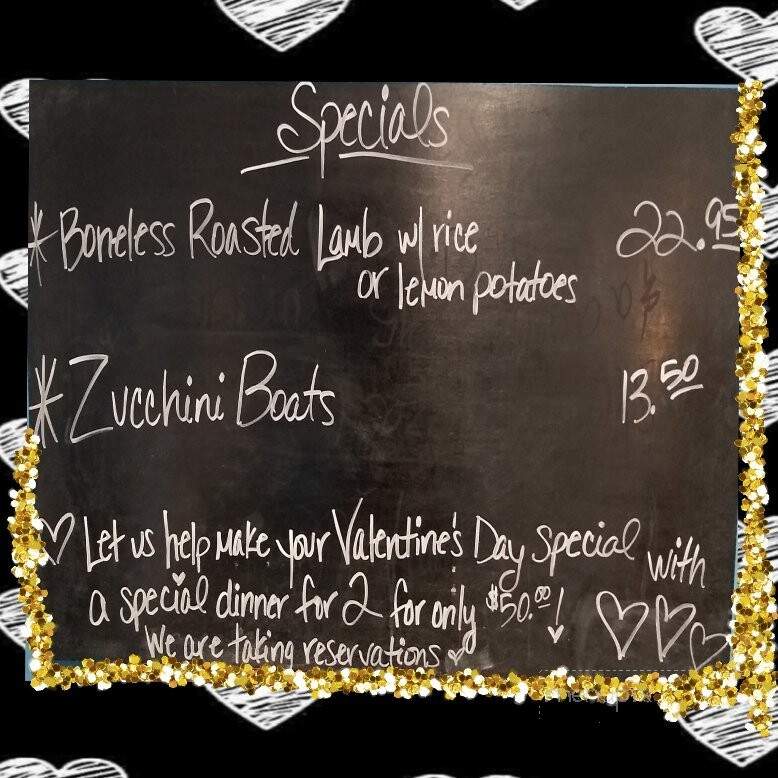 Specials
* Boneless Roasted Lamb w/ rice 22.95
or lemon potatoes
* Zucchini Boats 13.50
Let us help make your Valentine's Day special with
a special dinner for 2 for only $50.00!
We are taking reservations